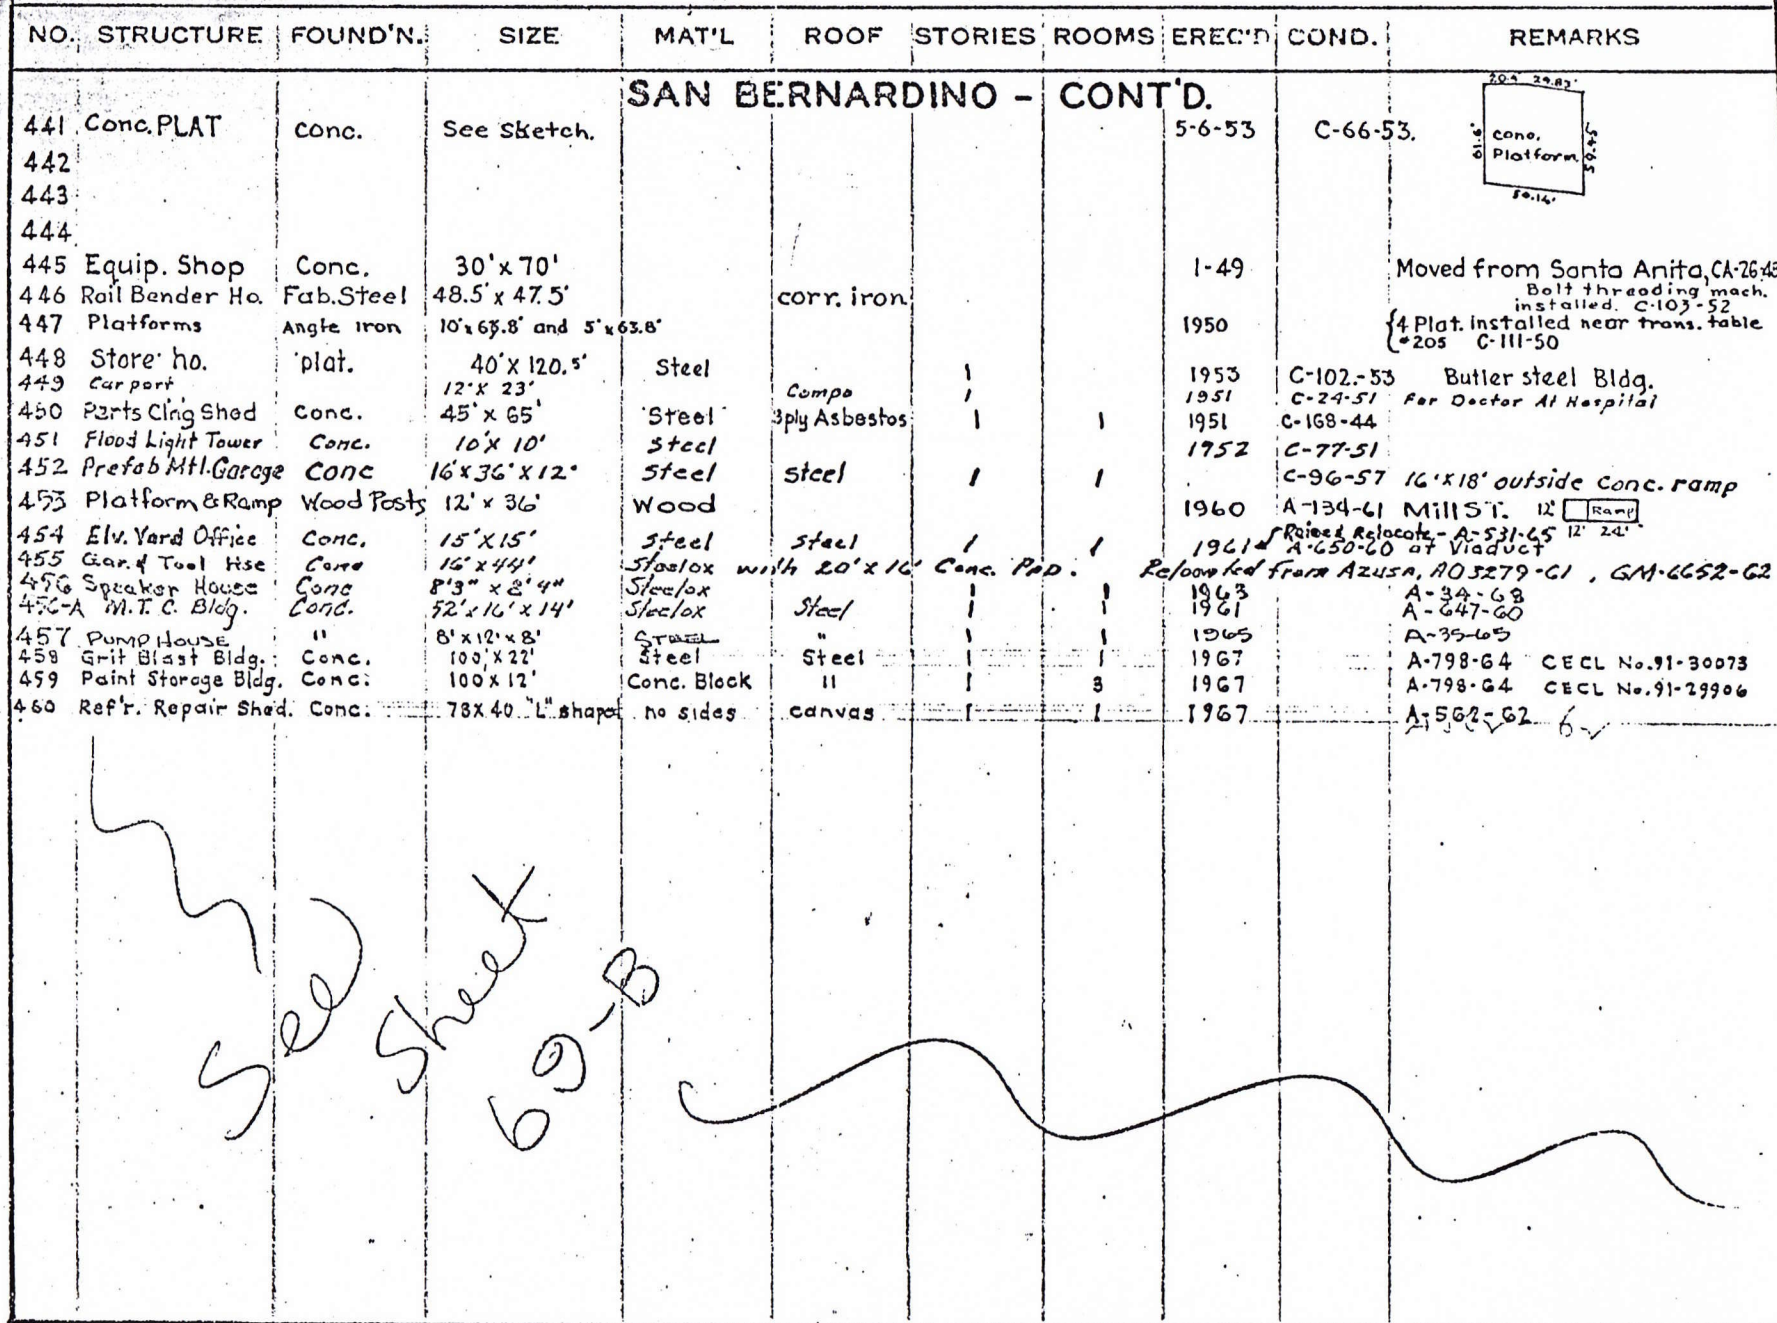 NO. STRUCTURE FOUND'N. SIZE MAT'L ROOF STORIES ROOMS EREC'D COND. REMARKS
SAN BERNARDINO - CONT'D.
441 Conc. PLAT Conc. See Sketch. 5-6-53 C-66-53.
20.4 29.83'
61.6'
Conc.
Platform
59.45
50.14'
442
443
444
445 Equip. Shop Conc. 30' x 70' 1-49 Moved from Santa Anita, CA-26-43
446 Rail Bender Ho. Fab. Steel 48.5' x 47.5' corr. iron Bolt threading mach.
installed. C-103-52
447 Platforms Angle Iron 10' x 63.8' and 5' x 63.8' 1950 {4 Plat. installed near trans. table
#205 C-111-50
448 Store ho. plat. 40' x 120.5' Steel 1 1953 C-102-53 Butler steel Bldg.
449 Car port 12' x 23' Compo 1 1951 C-24-51 For Doctor At Hospital
450 Parts Clng Shed Conc. 45' x 65' Steel 3ply Asbestos 1 1 1951 C-168-44
451 Flood Light Tower Conc. 10' x 10' Steel 1952 C-77-51
452 Prefab Mtl. Garage Conc 16' x 36' x 12' Steel steel 1 1 C-96-57 16' x 18' outside Conc. ramp
453 Platform & Ramp Wood Posts 12' x 36' Wood 1960 A-134-61 Mill ST. 12' Ramp
12' 24'
454 Elv. Yard Office Conc. 15' x 15' Steel steel 1 1 1961 Raised Relocate - A-531-65
A-650-60 at Viaduct
455 Gar. & Tool Hse Conc 16' x 44' Steelox with 20' x 16' Conc. Pad. Relocated from Azusa, AO 3279-61, GM-6652-62
456 Speaker House Conc 8'3" x 8'4" Steelox 1 1 1963 A-34-68
456-A M.T.C. Bldg. Conc. 52' x 16' x 14' Steelox Steel 1 1 1961 A-647-60
457 PUMP HOUSE " 8' x 12' x 8' STEEL " 1 1 1965 A-35-65
458 Grit Blast Bldg. Conc. 100' x 22' Steel Steel 1 1 1967 A-798-64 CECL No. 91-30073
459 Paint Storage Bldg. Conc. 100 x 12' Conc. Block 11 1 3 1967 A-798-64 CECL No. 91-29906
460 Ref'r. Repair Shed. Conc. 78 x 40 "L" shaped no sides canvas 1 1 1967 A-562-62
See
Sheet
69-B